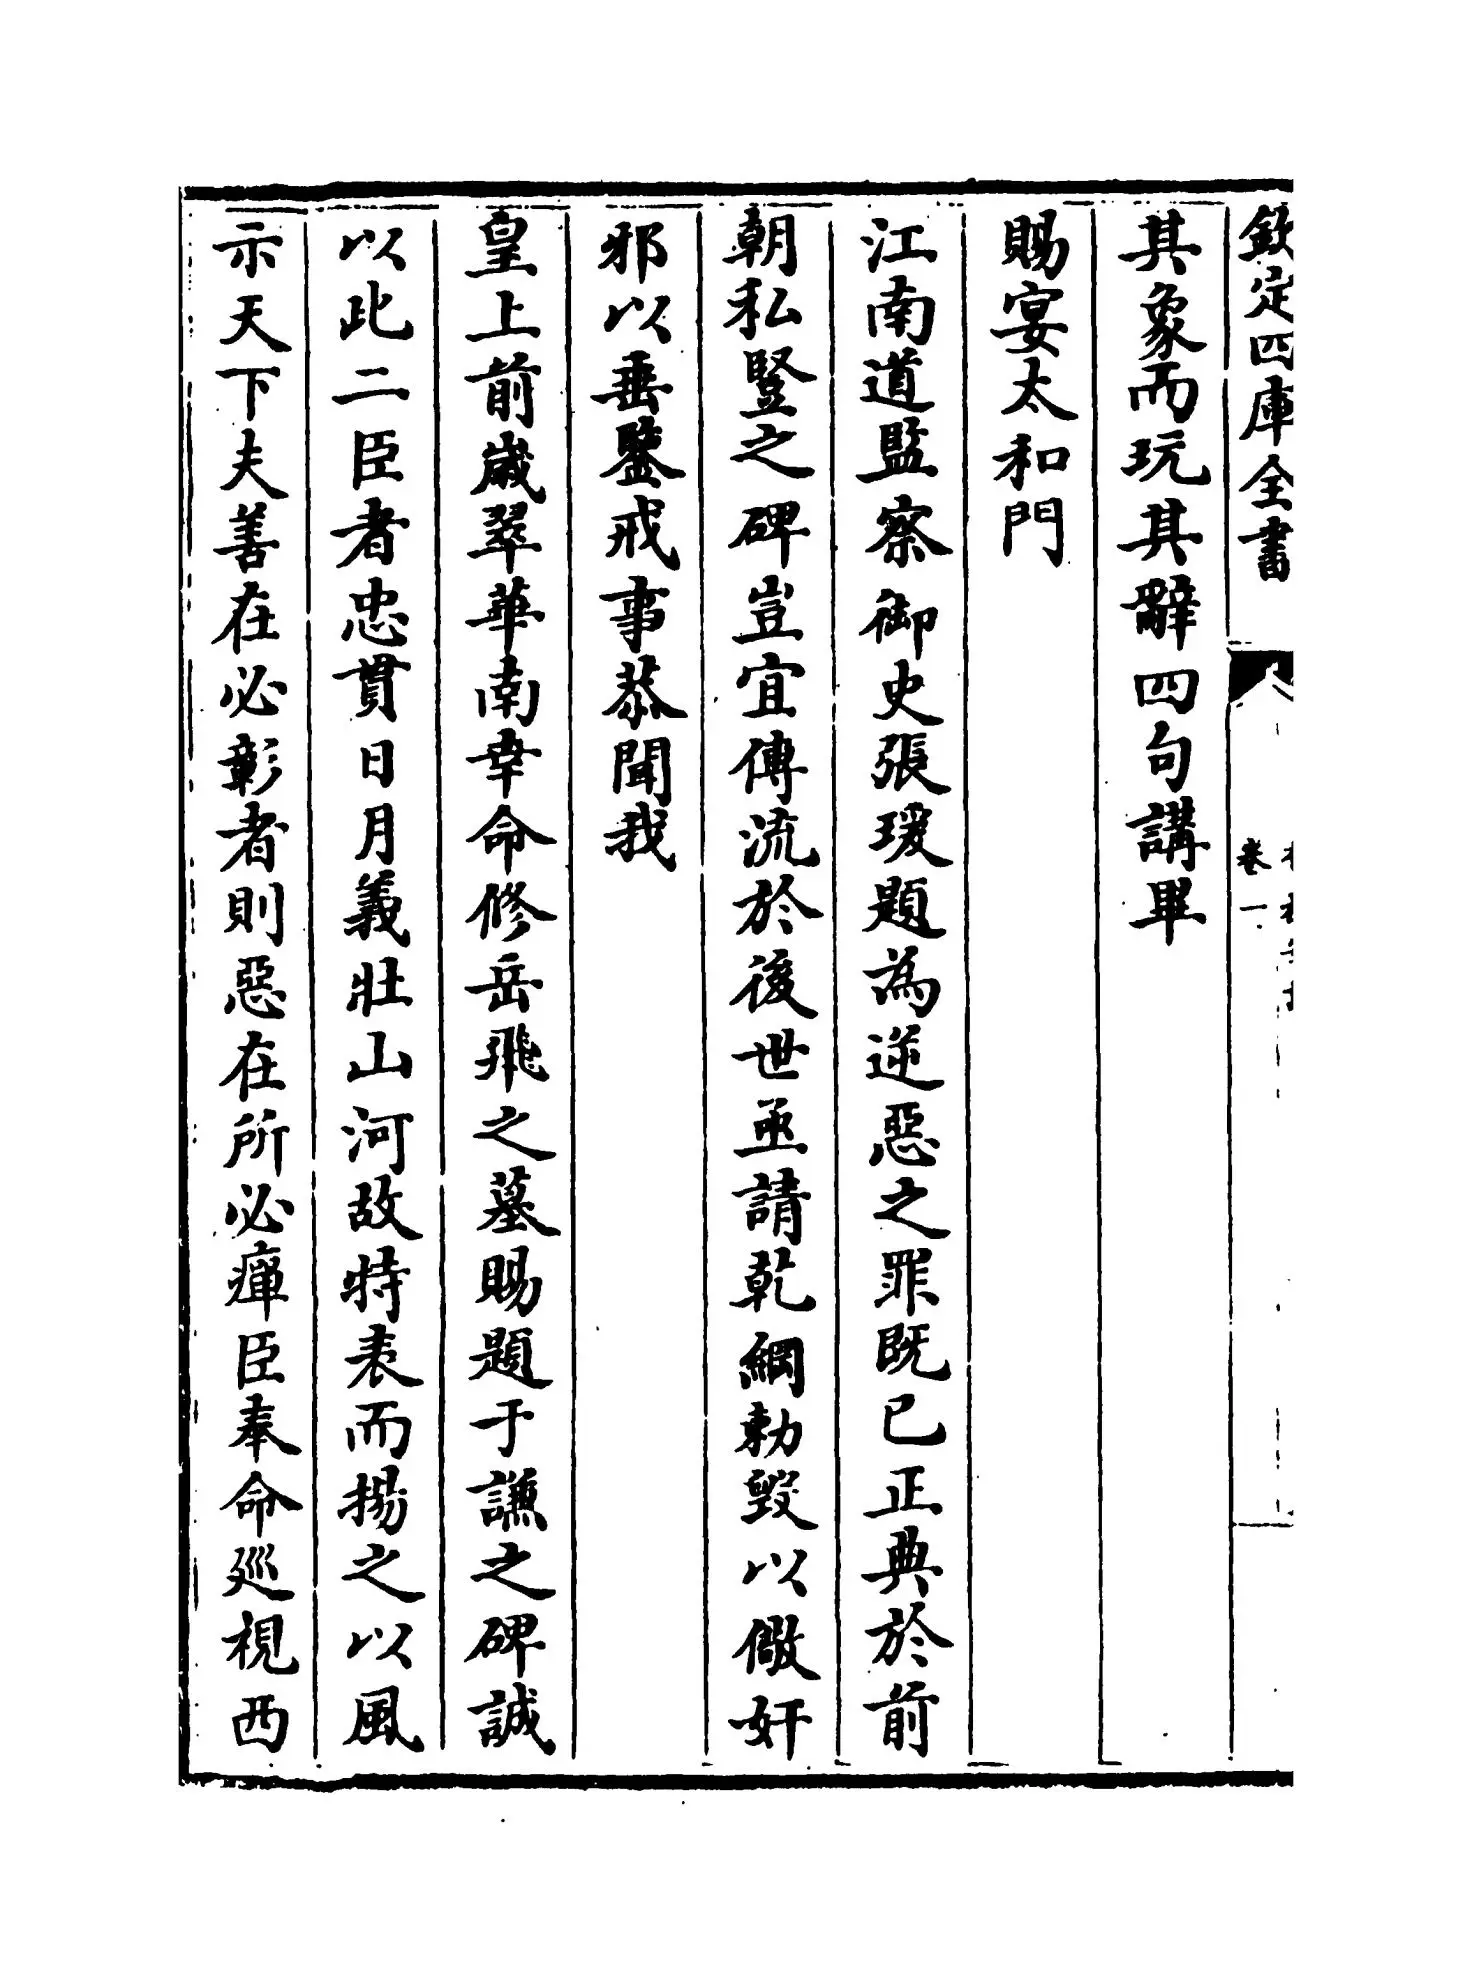 欽定四庫全書
卷一
其象而玩其辭四句講畢
賜宴太和門
江南道監察御史張瑗題為逆惡之罪既已正典於前
朝私豎之碑豈宜傳流於後世亟請乾綱勅毀以儆奸
邪以垂鑒戒事恭聞我
皇上前歲翠華南幸命修岳飛之墓賜題于謙之碑誠
以此二臣者忠貫日月義壯山河故特表而揚之以風
示天下夫善在必彰者則惡在所必癉臣奉命廵視西